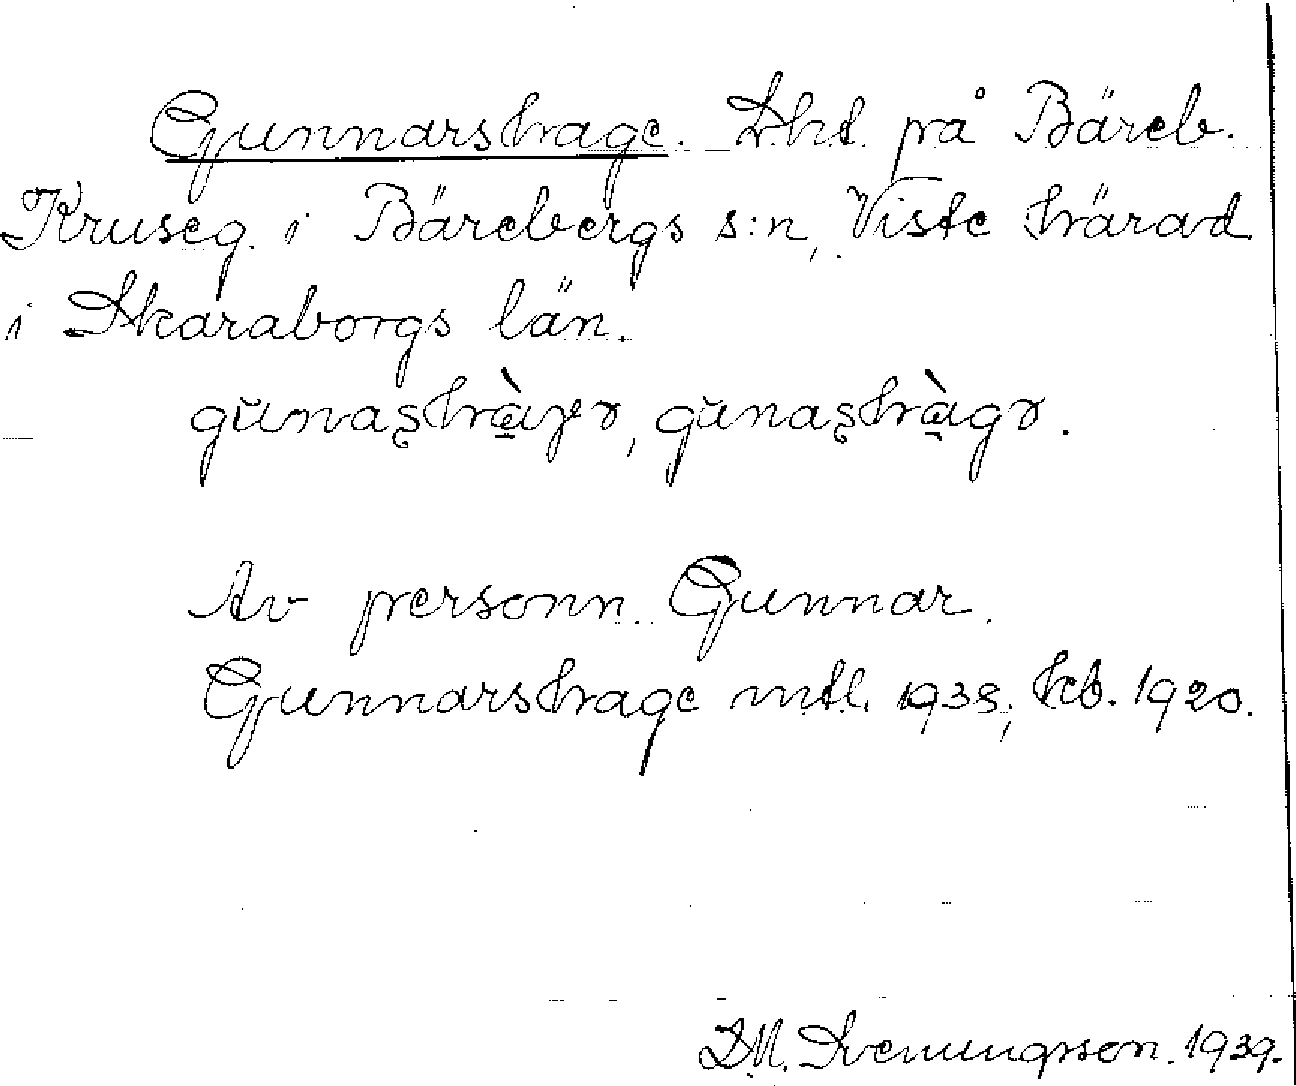 Gunnarshage. Lht. på Bäreb.
Kruseg. i Bärebergs s:n, Viste härad
i Skaraborgs län.
gŭnaʂhàɣə, gŭnaʂhàgə.
Av personn. Gunnar.
Gunnarshage mtl. 1938; kb. 1920.
D.M. Svenungsson. 1939.